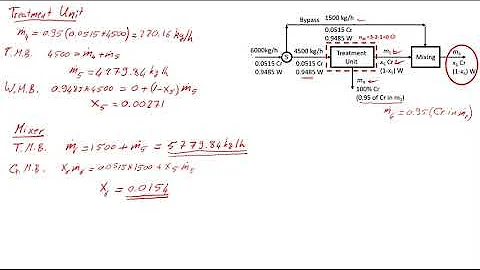 Treatment Unit
ṁ₄ = 0.95(0.0515*4500) = 220.16 kg/h
T.M.B. 4500 = ṁ₄ + ṁ₅
ṁ₅ = 4779.84 kg/h
W.M.B. 0.9485*4500 = 0 + (1-x₅) ṁ₅
x₅ = 0.00271
Mixer
T.M.B. ṁ₆ = 1500 + ṁ₅ = 5779.84 kg/h
C.M.B. x₆ ṁ₆ = 0.0515*1500 + x₅ ṁ₅
x₆ = 0.0154
Bypass 1500 kg/h
0.0515 Cr
0.9485 W
6000kg/h
S
4500 kg/h
0.0515 Cr
0.9485 W
0.0515 Cr
0.9485 W
=3-2-1=0
Treatment
Unit
x₅ Cr
(1-x₅) W
Mixing
x₆ Cr
(1-x₆) W
m₄
100% Cr
(0.95 of Cr in m₂)
ṁ₄ = 0.95(Cr in m₂)